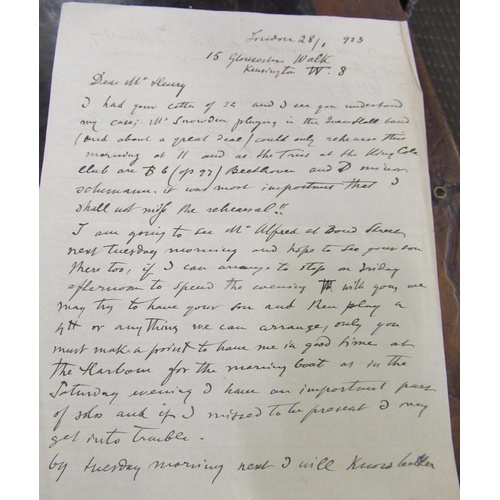 London 28/1 923
15 Gloucester Walk
Kensington W. 8
Dear Mr Henry
I had your letter of 24 and I see you understand
my case; Mr Snowden playing in the hall band
(and about a great deal) could only rehearse this
morning at 11 and as the Trios at the King Cole
Club are B b (op 97) Beethoven and D minor
Schumann. it was most important that I
shall not miss the rehearsal!!
I am going to see Mr Alfred at Bond Street
next tuesday morning and hope to see your son
there too, if I can arrange to stop on Friday
afternoon to spend the evening with you, we
may try to have your son and then play a
4tt or anything we can arrange, only you
must make a point to have me in good time at
the Harbour for the morning boat as in the
Saturday evening I have an important part
of solos and if I missed to be present I may
get into trouble.
by tuesday morning next I will know better